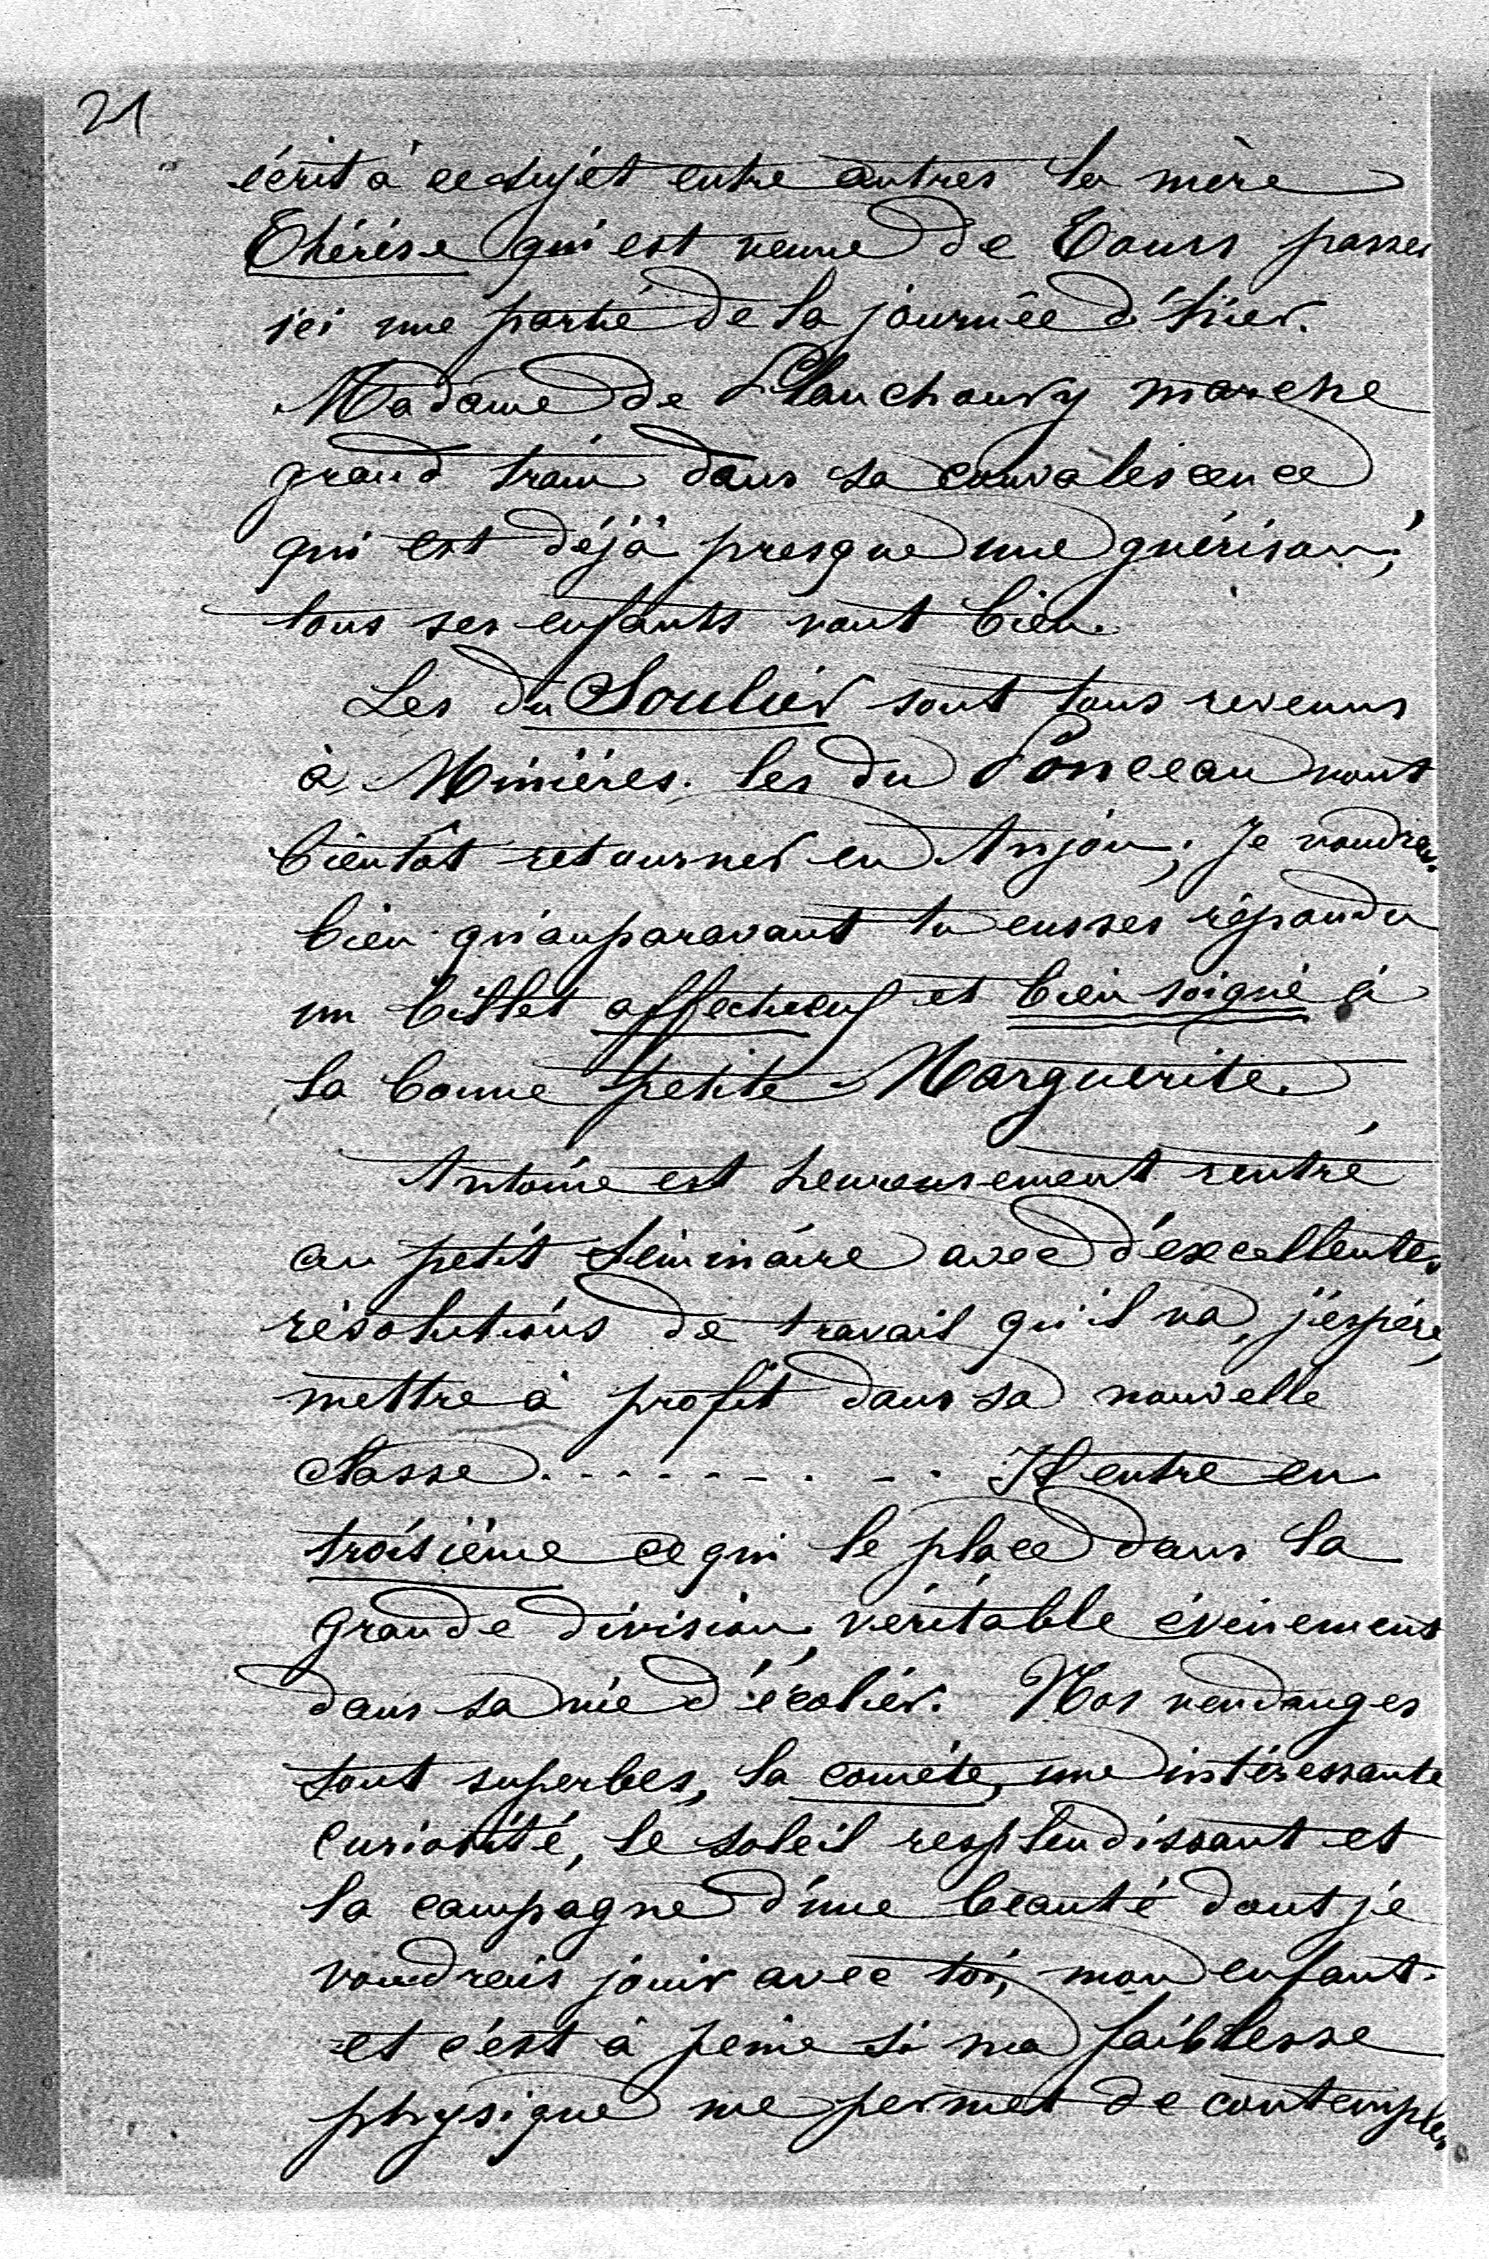 21
écrit à ce sujet entre autres la mère
Thérèse qui est venue de Tours passer
ici une partie de la journée d'hier.
Madame de Planchoury marche
grand train dans sa convalescence
qui est déjà presque une guérison ;
tous ses enfants vont bien.
Les du Soulier sont tous revenus
à Minières. les du Ponceau vont
bientôt retourner en Anjou ; Je voudrais
bien qu'auparavant tu eusses répondu
un billet affectueux et bien soigné à
la bonne petite Marguerite.
Antoine est heureusement rentré
au petit Séminaire avec d'excellentes
résolutions de travail qu'il va, j'espère,
mettre à profit dans sa nouvelle
classe . . . . . . . . . . Il entre en
troisième ce qui le place dans la
grande division, véritable évènement
dans sa vie d'écolier. Nos vendanges
sont superbes, la comète, une intéressante
curiosité, le soleil resplendissant et
la campagne d'une beauté dont je
voudrais jouir avec toi, mon enfant.
et c'est à peine si ma faiblesse
physique me permet de contempler